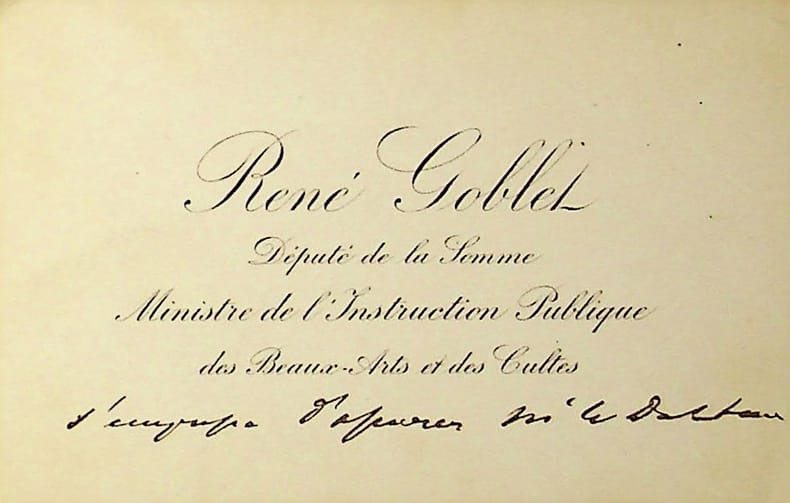 René Goblet
Député de la Somme
Ministre de l'Instruction Publique
des Beaux-Arts et des Cultes
d'assurer Mr le